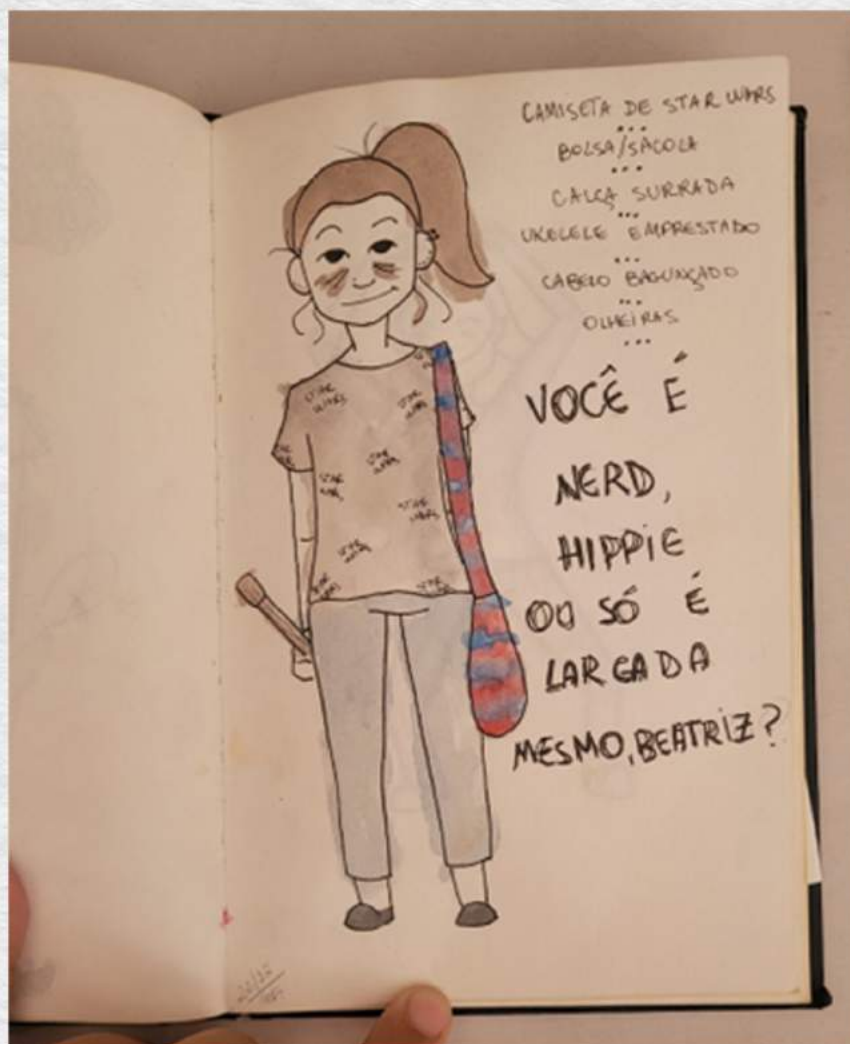 CAMISETA DE STAR WARS
...
BOLSA/SACOLA
...
CALÇA SURRADA
...
UKELELE EMPRESTADO
...
CABELO BAGUNÇADO
...
OLHEIRAS
...
VOCÊ É
NERD,
HIPPIE
OU SÓ É
LARGADA
MESMO, BEATRIZ?
STAR
WARS
STAR
WARS
STAR
WARS
STAR
WARS
STAR
WARS
STAR
WARS